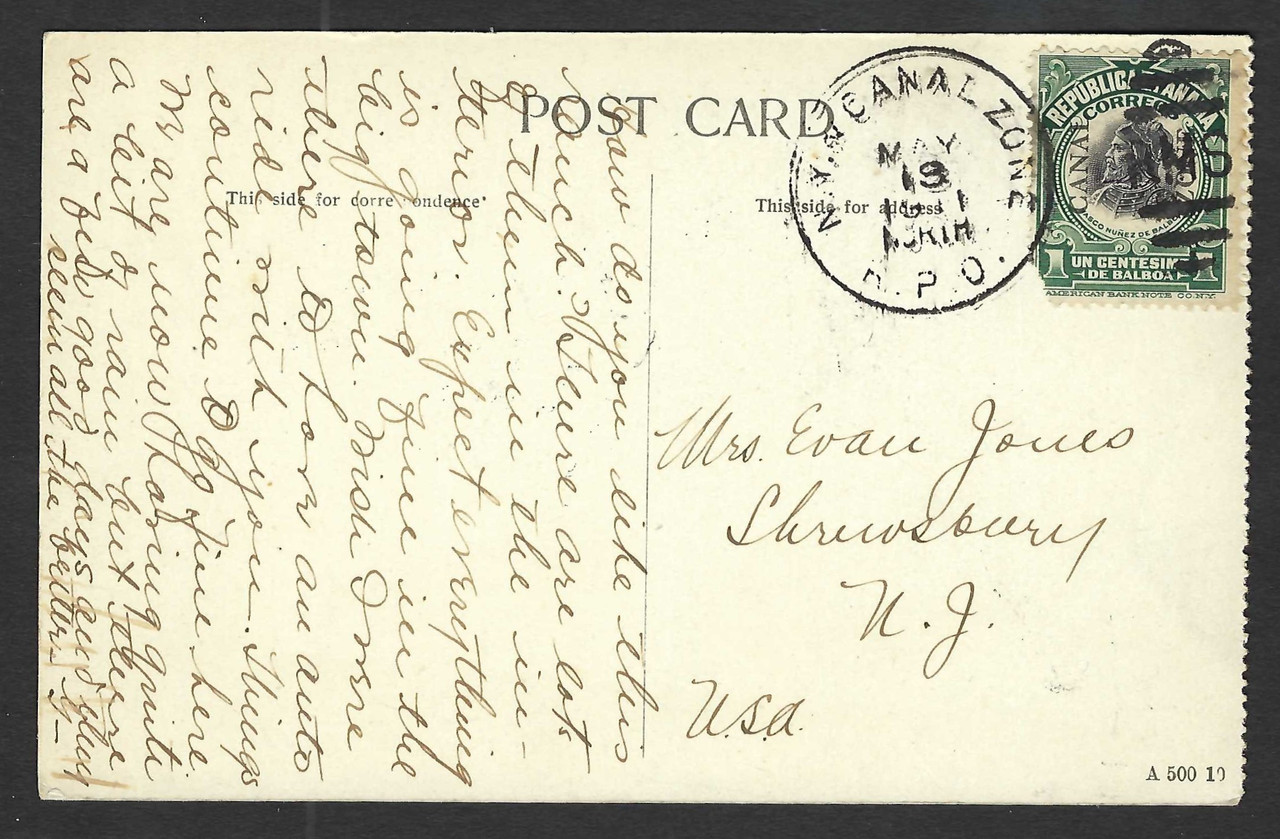 POST CARD
This side for corre ondence
This side for address
N.Y. & CANAL ZONE
MAY
13
1911
NORTH
R.P.O.
REPUBLICA PANAMA
CORREOS
CANAL
VASCO NUÑEZ DE BALBOA
1 UN CENTESIMO 1
(DE BALBOA)
AMERICAN BANK NOTE CO. N.Y.
RMS
How do you like this
ranch. There are lots
of them in the in-
terior. Expect everything
is going fine in the
big town. Wish I were
there to have an auto
ride with you. Things
continue to go fine here.
We are now having quite
a bit of rain but there
are a few good days and they
seem all the better.
Mrs. Evan Jones
Shrewsbury
N. J.
U.S.A.
A 500 10